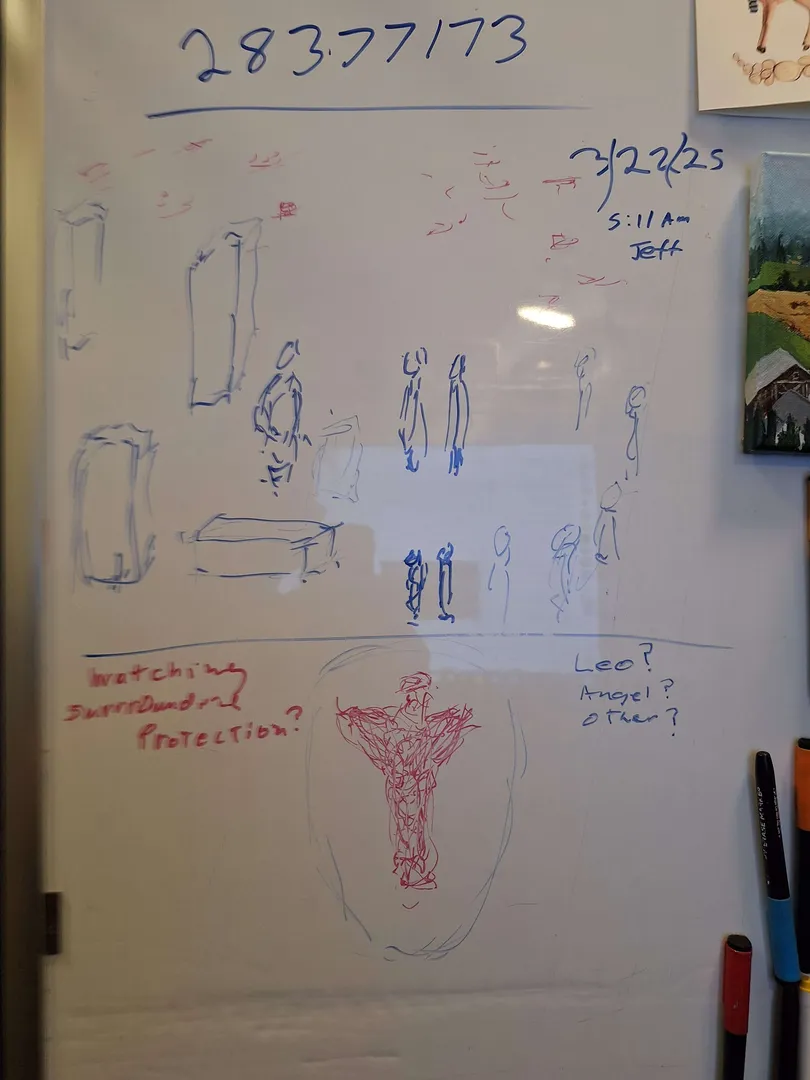 283.77173
3/22/25
5:11 Am
Jeff
watching
Protection?
Leo?
Angel?
other?